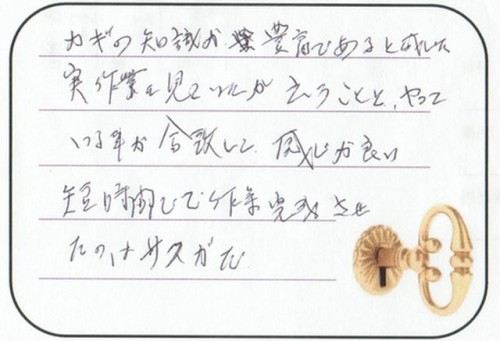 カギの知識が豊富であると感じた
実作業を見ていたが云うことと、やって
いる事が合致して 感じが良い
短時間じで作業完成させ
たのはサスガだ